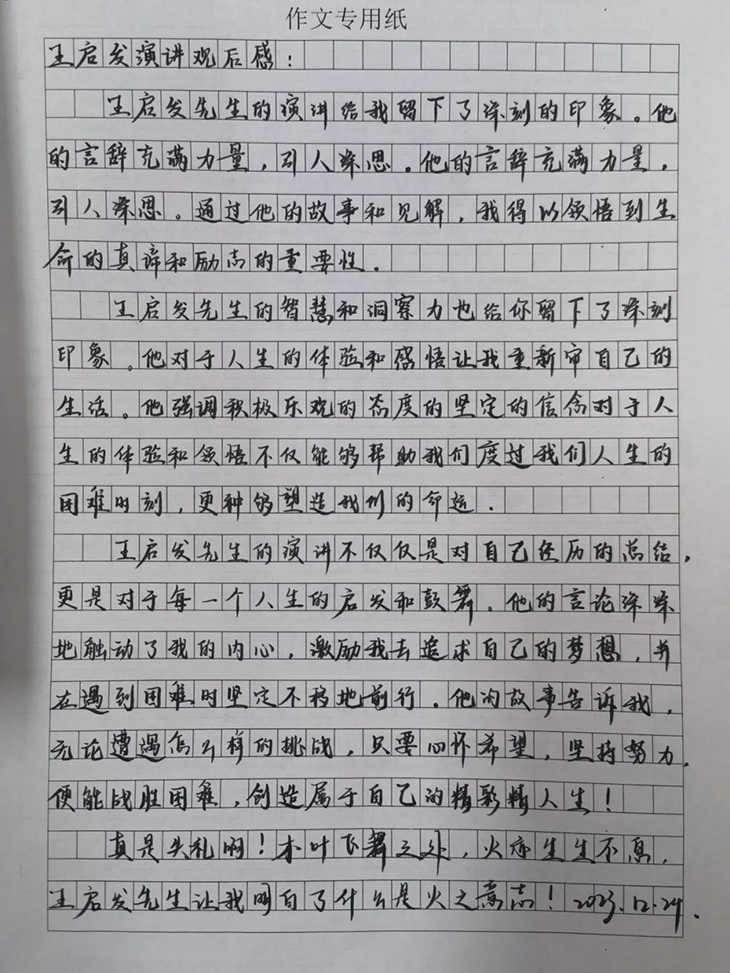 作文专用纸
王启发演讲观后感：
王启发先生的演讲给我留下了深刻的印象。他
的言辞充满力量，引人深思。他的言辞充满力量，
引人深思。通过他的故事和见解，我得以领悟到生
命的真谛和励志的重要性。
王启发先生的智慧和洞察力也给你留下了深刻
印象。他对于人生的体验和感悟让我重新审自己的
生活。他强调积极乐观的态度的坚定的信念对于人
生的体验和领悟不仅能够帮助我们度过我们人生的
困难时刻，更种够塑造我们的命运.
王启发先生的演讲不仅仅是对自己经历的总结，
更是对于每一个人生的启发和鼓舞。他的言论深深
地触动了我的内心，激励我去追求自己的梦想，并
在遇到困难时坚定不移地前行。他的故事告诉我，
无论遭遇怎么样的挑战，只要心怀希望，坚持努力，
便能战胜困难，创造属于自己的精彩精人生！
真是失礼啊！木叶飞舞之处，火亦生生不息，
王启发先生让我明白了什么是火之意志！2023.12.24.